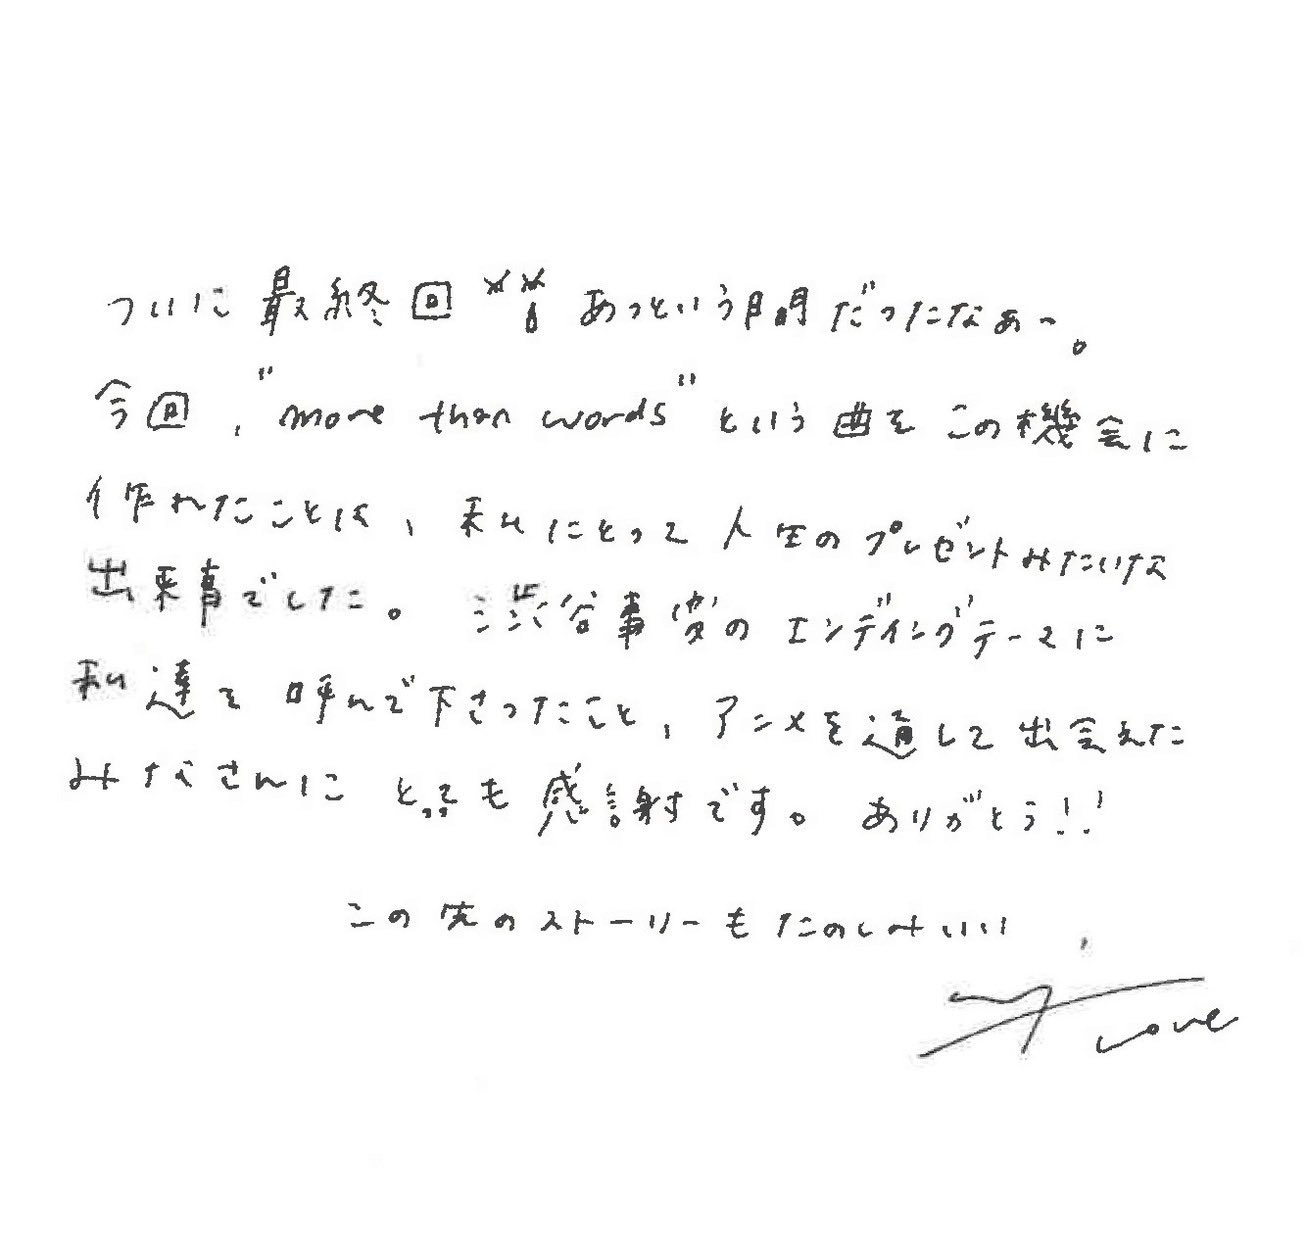 ついに最終回 あっという間だったなぁ〜。
今回、"more than words"という曲をこの機会に
作れたことは、私にとって人生のプレゼントみたいな
出来事でした。渋谷事変のエンディングテーマに
私達を呼んで下さったこと、アニメを通して出会えた
みなさんにとっても感謝です。ありがとう!!
この先のストーリーもたのしみいいい
Love